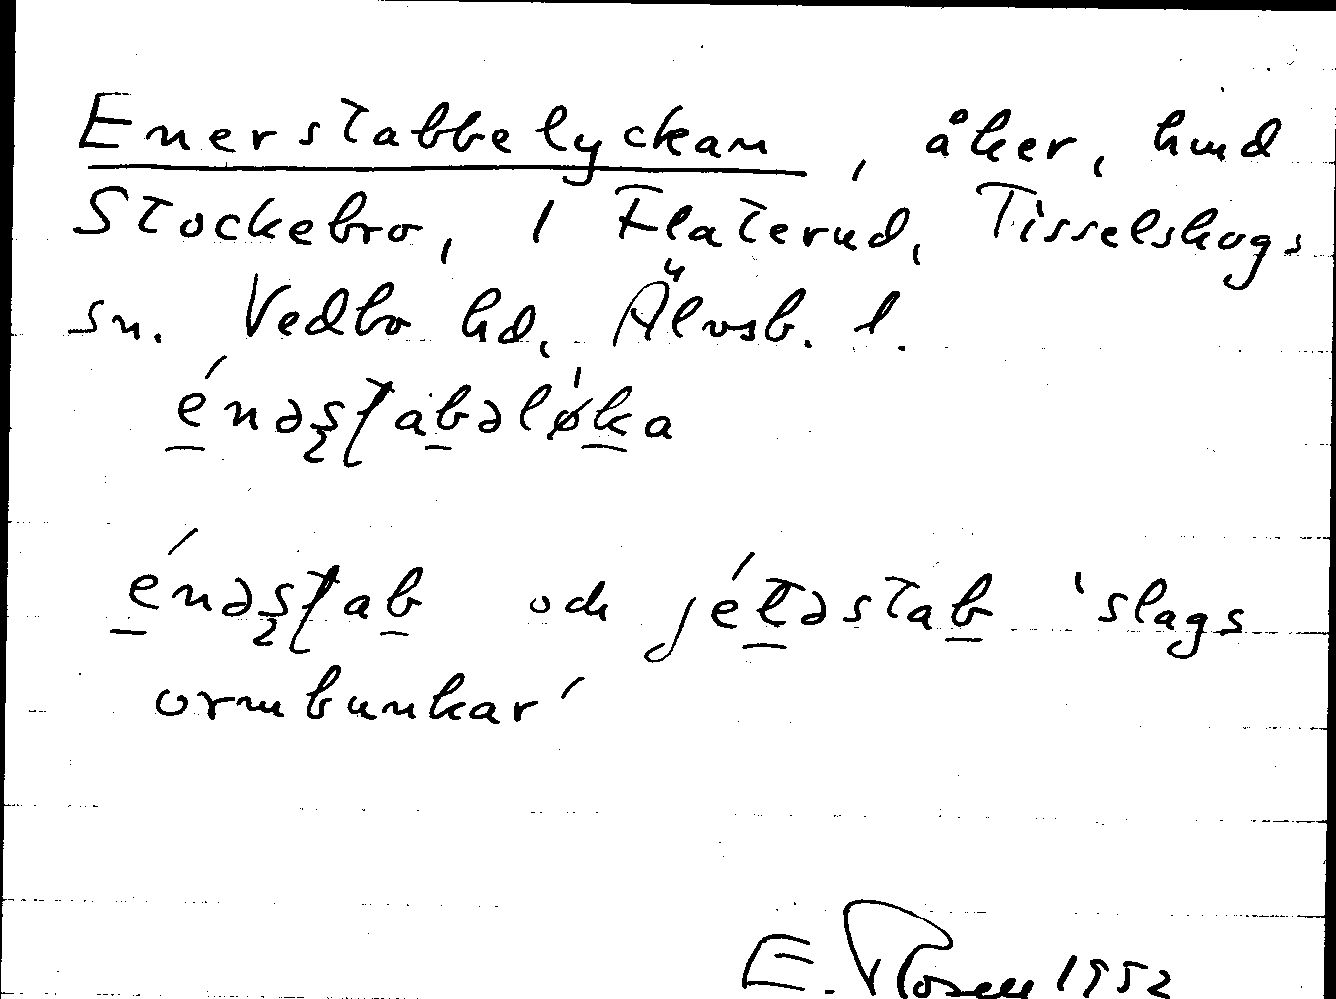 Enerstabbelyckan, åker, hmd
Stockebro, 1 Flaterud, Tisselskogs
sn. Vedbo hd, Älvsb. l.
énəʂʈabəlø̀ka
énəʂʈab och jétəstab 'slags
ormbunkar'
E. 1952